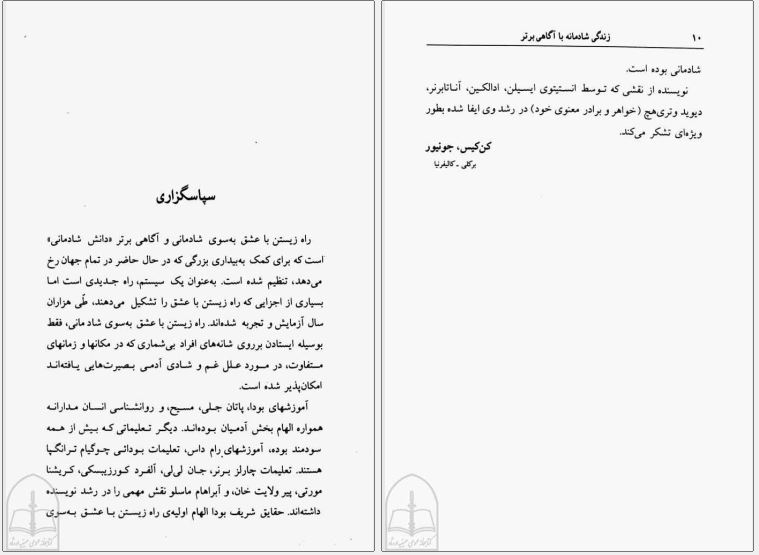 سپاسگزاری
راه زیستن با عشق به‌سوی شادمانی و آگاهی برتر «دانش شادمانی»
است که برای کمک به‌بیداری بزرگی که در حال حاضر در تمام جهان رخ
می‌دهد، تنظیم شده است. به‌عنوان یک سیستم، راه جدیدی است اما
بسیاری از اجزایی که راه زیستن با عشق را تشکیل می‌دهند، طّی هزاران
سال آزمایش و تجربه شده‌اند. راه زیستن با عشق به‌سوی شادمانی، فقط
بوسیله ایستادن برروی شانه‌های افراد بی‌شماری که در مکانها و زمانهای
متفاوت، در مورد علل غم و شادی آدمی بصیرت‌هایی یافته‌اند
امکان‌پذیر شده است.
آموزشهای بودا، پاتان جلی، مسیح، و روانشناسی انسان مدارانه
همواره الهام بخش آدمیان بوده‌اند. دیگر تعلیماتی که بیش از همه
سودمند بوده، آموزشهای رام داس، تعلیمات بودائی چوگیام ترانگپا
هستند. تعلیمات چارلز برنر، جان لی‌لی، آلفرد کورزیبسکی، کریشنا
مورتی، پیر ولایت خان، و آبراهام ماسلو نقش مهمی را در رشد نویسنده
داشته‌اند. حقایق شریف بودا الهام اولیه‌ی راه زیستن با عشق به‌سوی
۱۰ زندگی شادمانه با آگاهی برتر
شادمانی بوده است.
نویسنده از نقشی که توسط انستیتوی ایسیلن، ادالکین، آناتابرنر،
دیوید وتری‌هچ (خواهر و برادر معنوی خود) در رشد وی ایفا شده بطور
ویژه‌ای تشکر می‌کند.
کن‌کیس، جونیور
برکلی - کالیفرنیا